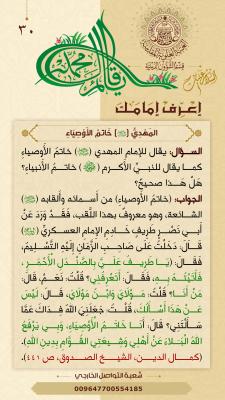 ٣٠
اِعْرِفْ إِمَامَكَ
المَهْدِيُّ (عليه السلام) خَاتَمُ الأَوْصِيَاءِ
السؤال: يقال للإمام المهدي (عليه السلام) خاتمُ الأوصياءِ
كما يقال للنبيِّ الأكرم (صلى الله عليه وآله) خاتمُ الأنبياءِ؟
هَلْ هَذَا صحيحٌ؟
الجواب: (خاتمُ الأوصياءِ) من أسمائه وألقابه (عليه السلام)
الشائعة، وهو معروفٌ بهذا اللَّقب، فَقَدْ وَرَدَ عَنْ
أبي نصْرٍ طريفٍ خَادِمِ الإمامِ العسكريِّ (عليه السلام)
قَالَ: دَخَلْتُ عَلَى صَاحِبِ الزَّمَانِ إِلَيْهِ التَّسْلِيمُ،
فَقَالَ: (يَا طَرِيفُ عَلَيَّ بِالصَّنْدَلِ الأَحْمَرِ،
فَأَتَيْتُهُ بِهِ، فَقَالَ: أَتَعْرِفُنِي؟ قُلْتُ: نَعَمْ، قَالَ:
مَنْ أَنَا؟ قُلْتُ: مَوْلَايَ وَابْنُ مَوْلَايَ، قَالَ: لَيْسَ
عَنْ هَذَا أَسْأَلُكَ، قُلْتُ: جَعَلَنِي اللهُ فِدَاكَ عَمَّا
سَأَلْتَنِي؟ قَالَ: أَنَا خَاتَمُ الأَوْصِيَاءِ، وَبِي يَرْفَعُ
اللهُ البَلَاءَ عَنْ أَهْلِي وَشِيعَتِي القُوَّامِ بِدِينِ اللهِ).
(كمال الدين، الشيخ الصدوق، ص ٤٤١).
شعبة التواصل الخارجي
009647700554185